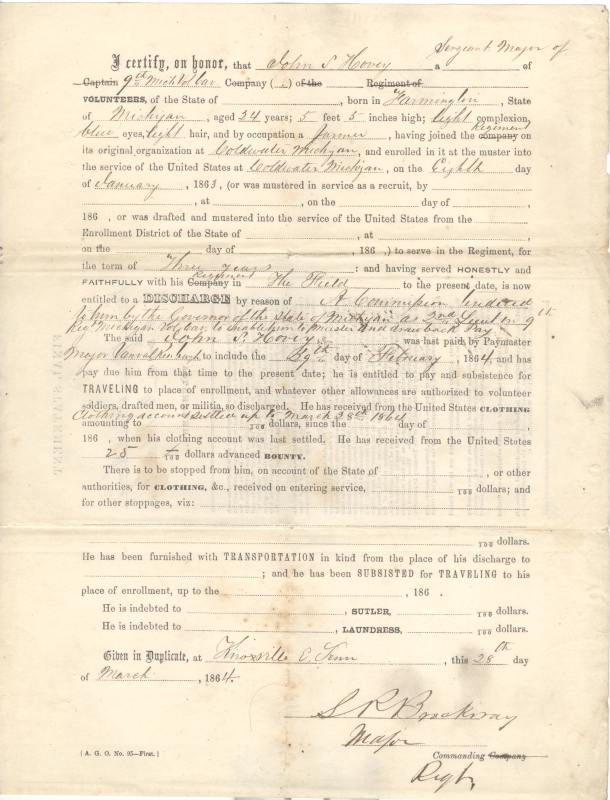 Sergeant Major of
I certify, on honor, that John S. Hovey a of
Captain 9th Mich Vol Cav Company ( ) of the Regiment of
VOLUNTEERS, of the State of , born in Farmington, State
of Michigan, aged 24 years; 5 feet 5 inches high; light complexion,
blue eyes, light hair, and by occupation a farmer, having joined the company Regiment on
its original organization at Coldwater Michigan, and enrolled in it at the muster into
the service of the United States at Coldwater Michigan, on the Eighth day
of January, 1863, (or was mustered in service as a recruit, by
, at , on the day of ,
186 , or was drafted and mustered into the service of the United States from the
Enrollment District of the State of , at ,
on the day of , 186 ,) to serve in the Regiment, for
the term of Three years : and having served HONESTLY and
FAITHFULLY with his Company Regiment in The Field to the present date, is now
entitled to a DISCHARGE by reason of A Commission tendered
to him by the Governor of the State of Michigan as 2nd Lieut in 9th
Reg Michigan Vol Cav, to enable him to muster and draw back Pay
The said John S. Hovey was last paid by Paymaster
Major to include the 29th day of February, 1864, and has
pay due him from that time to the present date; he is entitled to pay and subsistence for
TRAVELING to place of enrollment, and whatever other allowances are authorized to volunteer
soldiers, drafted men, or militia, so discharged. He has received from the United States CLOTHING
Clothing account settled up to March 28th 1864
amounting to 100 dollars, since the day of ,
186 , when his clothing account was last settled. He has received from the United States
25 100 dollars advanced BOUNTY.
There is to be stopped from him, on account of the State of , or other
authorities, for CLOTHING, &c., received on entering service, 100 dollars; and
for other stoppages, viz:
100 dollars.
He has been furnished with TRANSPORTATION in kind from the place of his discharge to
; and he has been SUBSISTED for TRAVELING to his
place of enrollment, up to the , 186 .
He is indebted to , SUTLER, 100 dollars.
He is indebted to , LAUNDRESS, 100 dollars.
Given in Duplicate, at Knoxville E. Tenn, this 28th day
of March, 1864.
Brockway
Major
[A. G. O. No. 95—First.] Commanding Company
Regt.